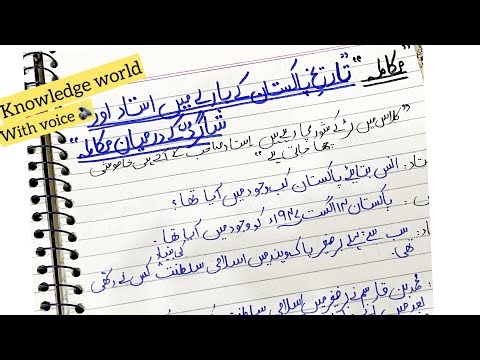 Knowledge world
With voice
"مکالمہ"
"تاریخ پاکستان کے بارے میں استاد اور
شاگرد کے درمیان مکالمہ"
"کلاس میں لڑکے شور مچا رہے ہیں استاد صاحب کے آتے ہی خاموشی
چھا جاتی ہے"
استاد: انس بتائیے پاکستان کب وجود میں آیا تھا؟
پاکستان ۱۴ اگست ۱۹۴۷ء کو وجود میں آیا تھا۔
سب سے پہلے برصغیر پاک و ہند میں اسلامی سلطنت کی بنیاد کس نے رکھی
تھی۔
محمد بن قاسم نے برصغیر میں اسلامی